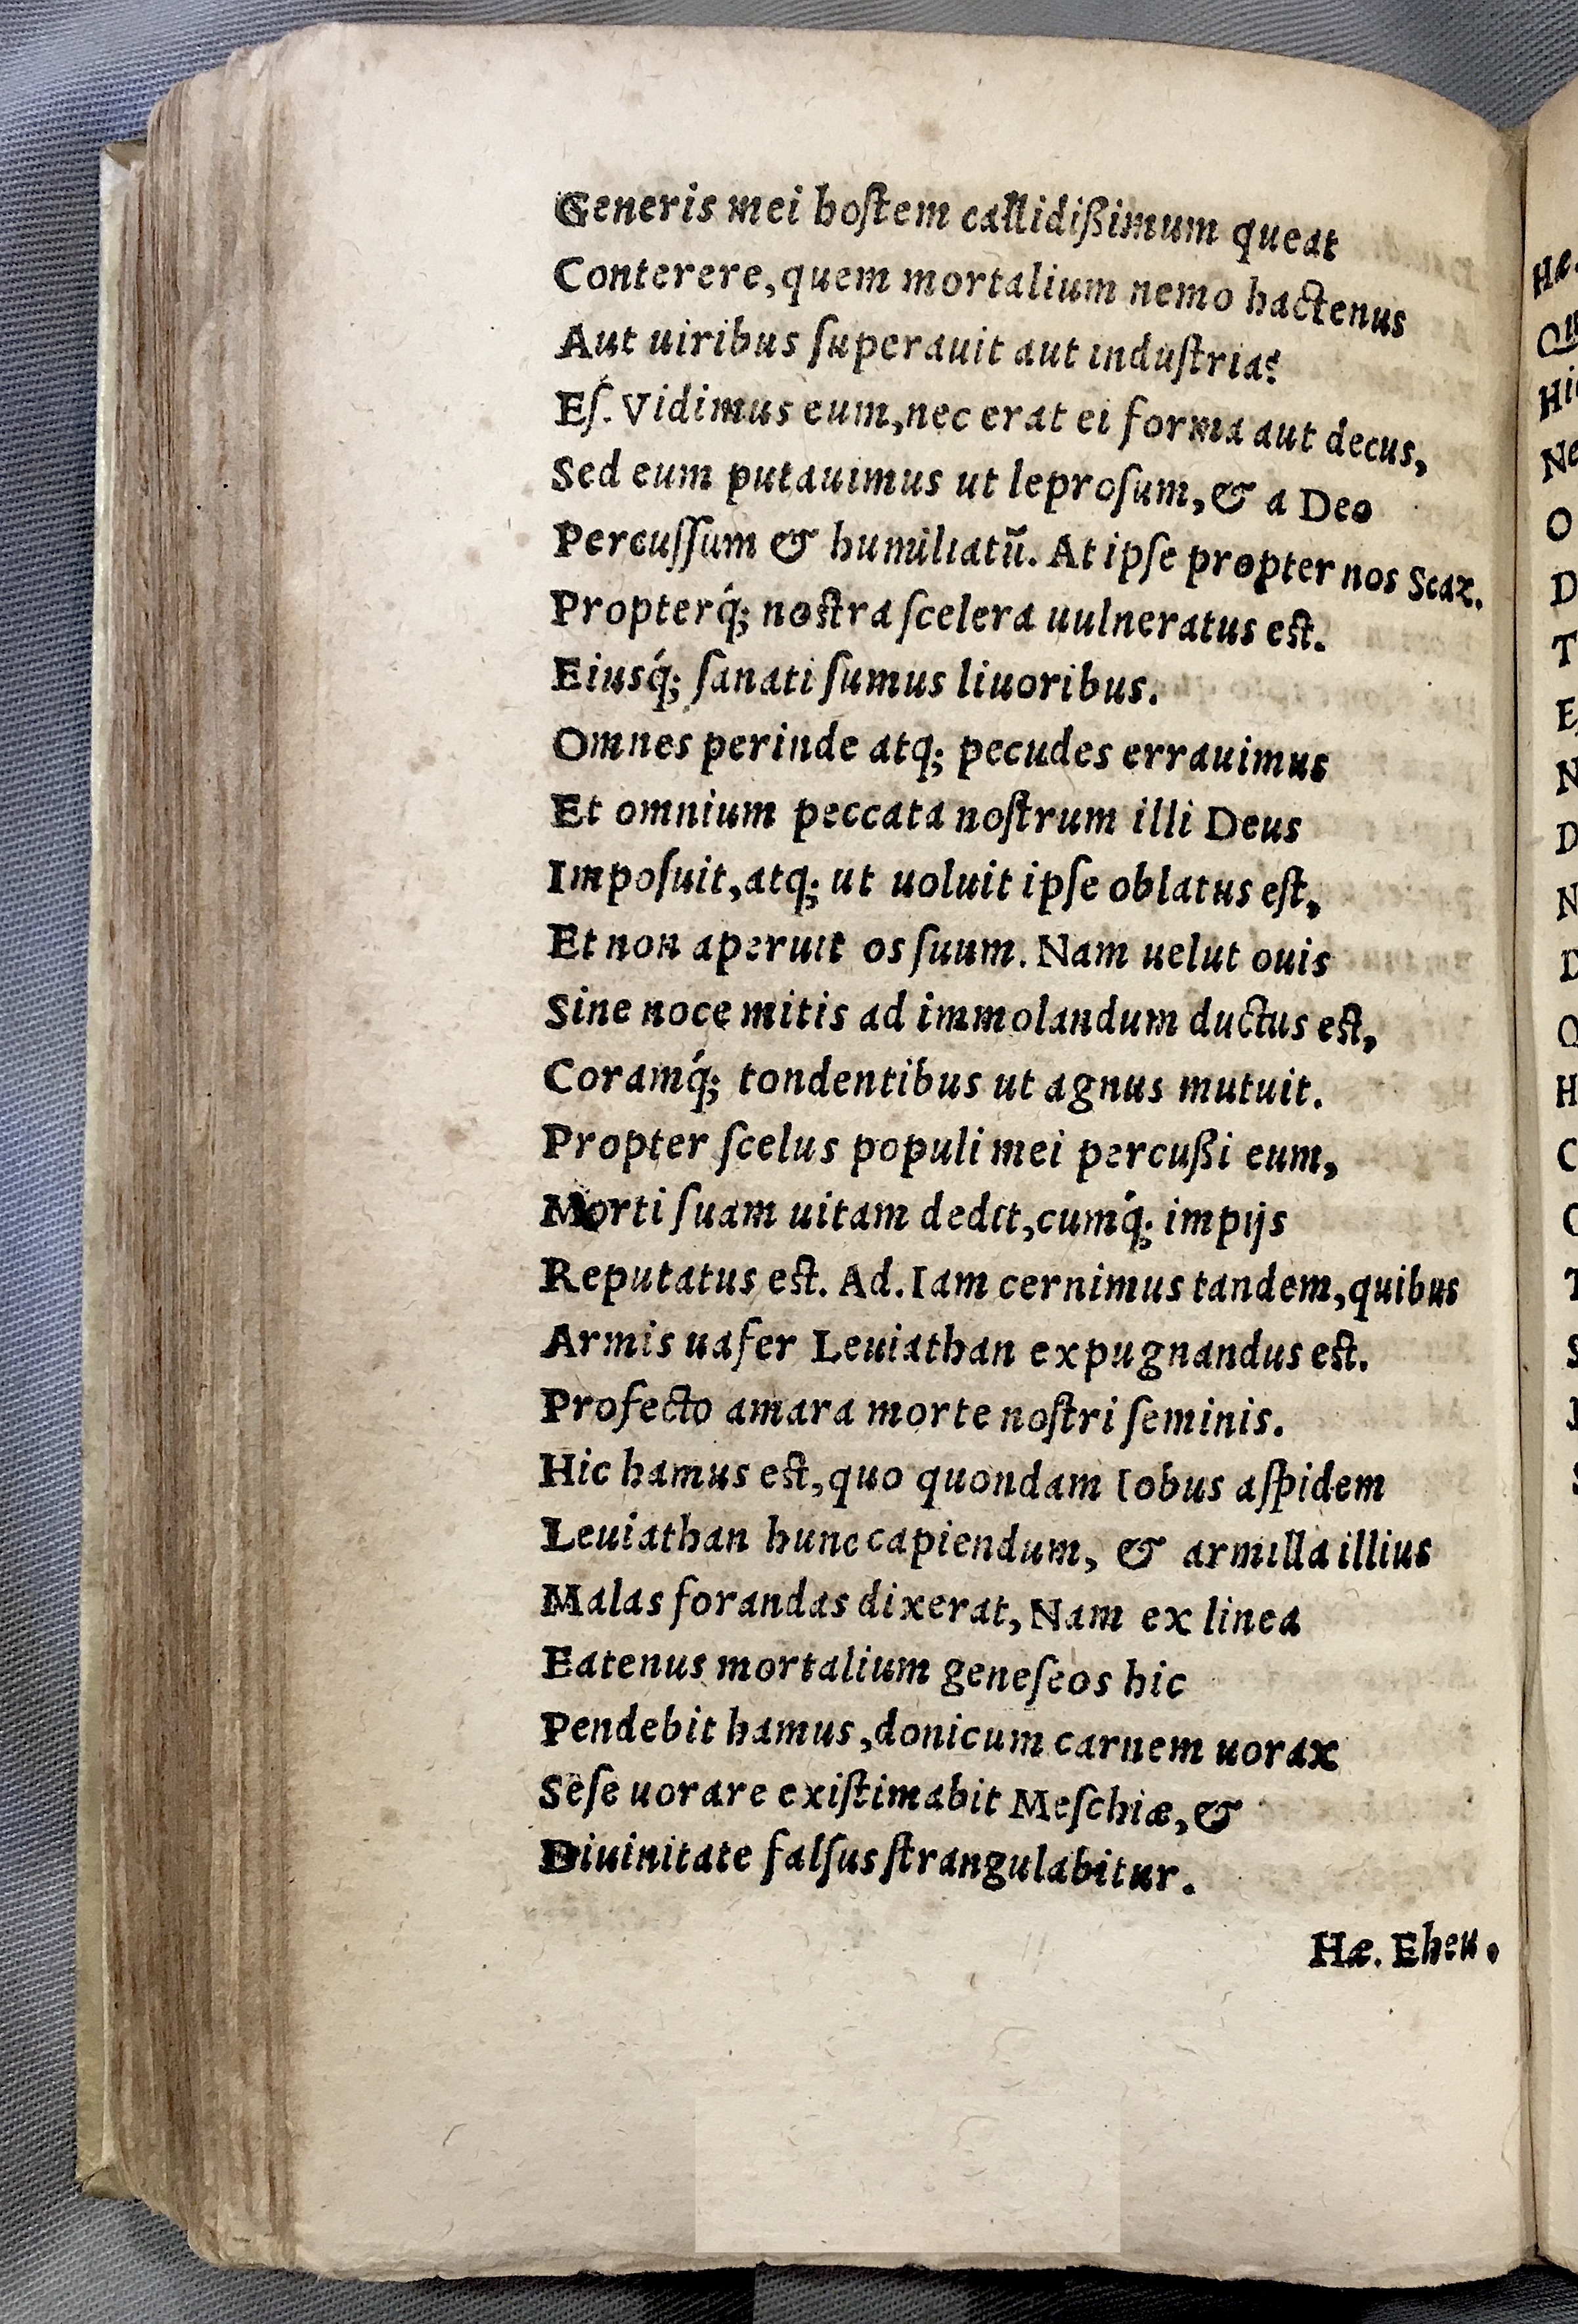 Generis mei hoſtem callidißimum queat
Conterere, quem mortalium nemo hactenus
Aut uiribus ſuperauit aut induſtria?
Eſ. Vidimus eum, nec erat ei forma aut decus,
Sed eum putauimus ut leproſum, & a Deo
Percuſſum & humiliatū. At ipſe propter nos Scat.
Propterq́; noſtra ſcelera uulneratus eſt.
Eiusq́; ſanati ſumus liuoribus.
Omnes perinde atq; pecudes errauimus
Et omnium peccata noſtrum illi Deus
Impoſuit, atq; ut uoluit ipſe oblatus eſt,
Et non aperuit os ſuum. Nam uelut ouis
Sine noce mitis ad immolandum ductus eſt,
Coramq́; tondentibus ut agnus mutuit.
Propter ſcelus populi mei percußi eum,
Morti ſuam uitam dedit, cumq́; impijs
Reputatus eſt. Ad. Iam cernimus tandem, quibus
Armis uafer Leuiathan expugnandus eſt.
Profecto amara morte noſtri ſeminis.
Hic hamus eſt, quo quondam Iobus aſpidem
Leuiathan hunc capiendum, & armilla illius
Malas forandas dixerat, Nam ex linea
Eatenus mortalium geneſeos hic
Pendebit hamus, donicum carnem uorax
Seſe uorare exiſtimabit Meſchiæ, &
Diuinitate falſus ſtrangulabitur.
Hæ. Eheu.